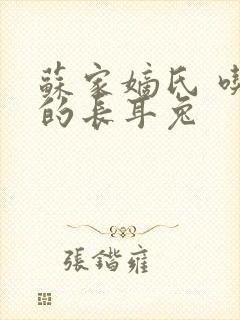 蘇家嫡氏
的長耳兔
張鍇雍